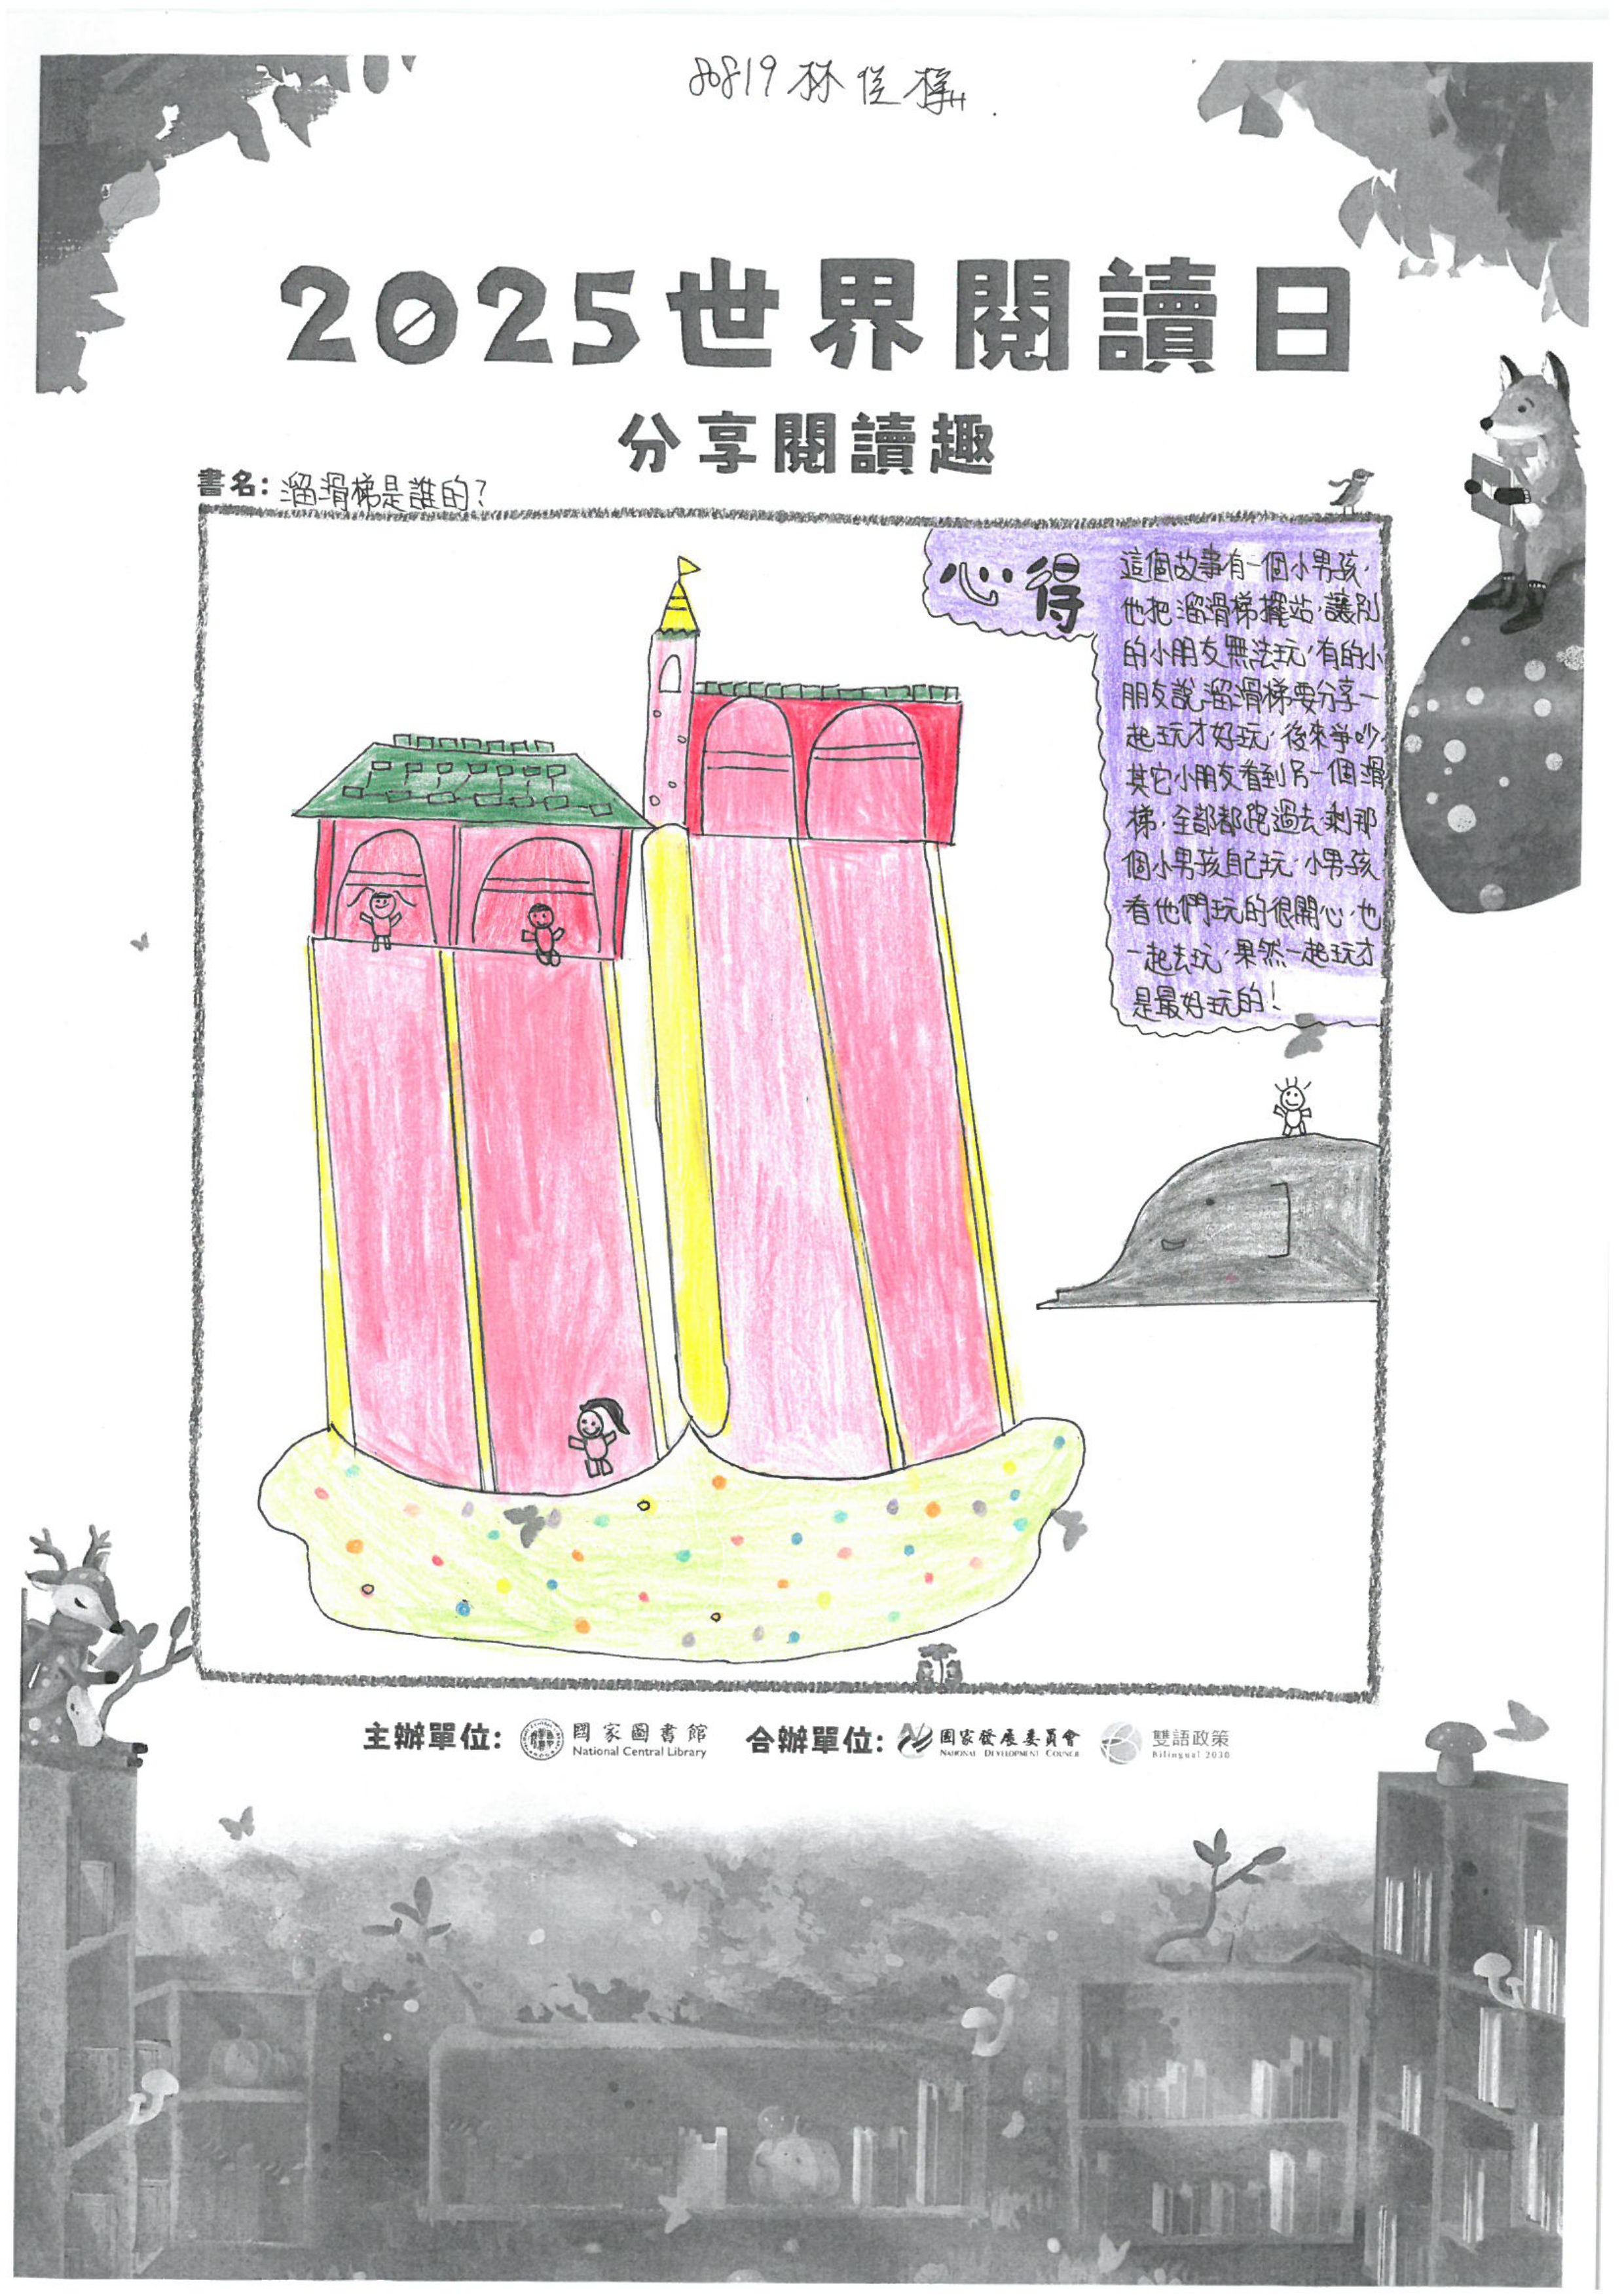 80819 林俊樺
2025世界閱讀日
分享閱讀趣
書名：溜滑梯是誰的？
心得
這個故事有一個小男孩，
他把溜滑梯擺站，讓別
的小朋友無法玩，有的小
朋友說溜滑梯要分享一
起玩才好玩，後來爭吵，
其它小朋友看到另一個滑
梯，全部都跑過去，剩那
個小男孩自己玩，小男孩
看他們玩的很開心，也
一起去玩，果然一起玩才
是最好玩的！
主辦單位：國家圖書館 National Central Library 合辦單位：國家發展委員會 NATIONAL DEVELOPMENT COUNCIL 雙語政策 Bilingual 2030